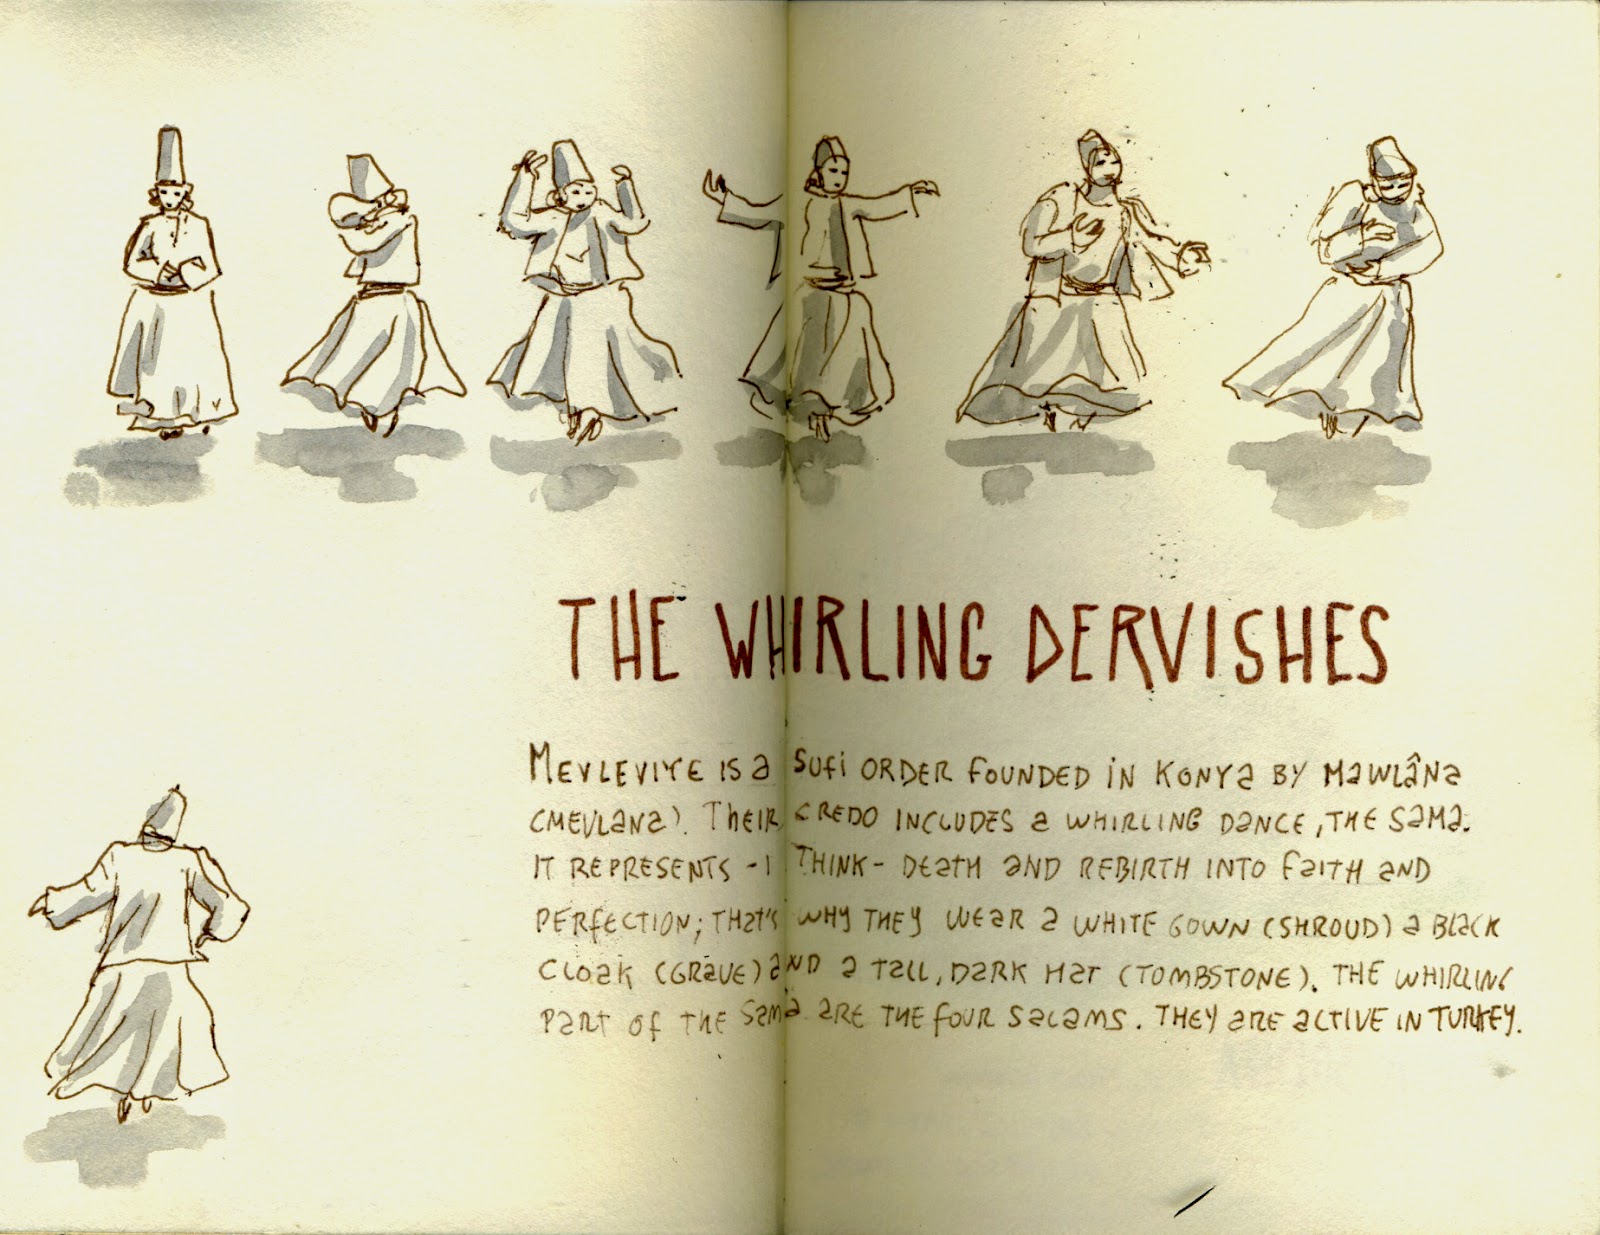 THE WHIRLING DERVISHES
MEVLEVIYE IS a SUfi ORDER fOUNDED iN KONYa BY MaWLâNa
(MEVLaNa). THEIR CREDO INCLUDES a WHIRLING DANCE, THE SaMa.
IT REPRESENTS - I THINK - DEaTH aND REBIRTH INTO FaITH aND
PERFECTION; THaT'S WHY THEY WEaR a WHITE GOWN (SHROUD) a BLacK
CLOaK (GRaVE) aND a Tall, DaRK HaT (TOMBSTONE). THE WHIRLING
PaRT OF THE Sama aRE THE fOUR SaLaMS. THEY aRE aCTIVE IN TURKEY.